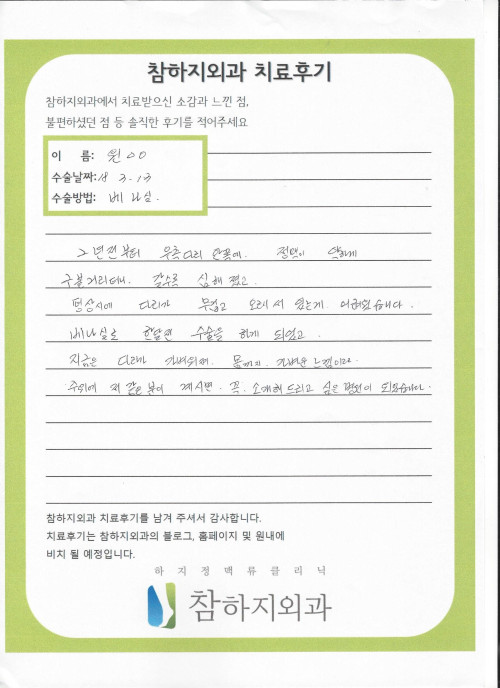 참하지외과 치료후기
참하지외과에서 치료받으신 소감과 느낀 점,
불편하셨던 점 등 솔직한 후기를 적어주세요
이 름: 원○○
수술날짜: 18 3. 13
수술방법: 베나실.
2년전부터 우측다리 안쪽에. 정맥이 약하게
구불거리더니. 갈수록 심해졌고.
평상시에 다리가 무겁고 오래 서 있는게. 어려웠습니다.
베나실로 한달전 수술을 하게 되었고.
지금은 다리가 가벼워져. 몸까지. 가벼운 느낌이라.
주위에 저 같은 분이 계시면. 꼭. 소개해 드리고 싶은 병원이 되었습니다.
참하지외과 치료후기를 남겨 주셔서 감사합니다.
치료후기는 참하지외과의 블로그, 홈페이지 및 원내에
비치 될 예정입니다.
하지정맥류클리닉
참하지외과